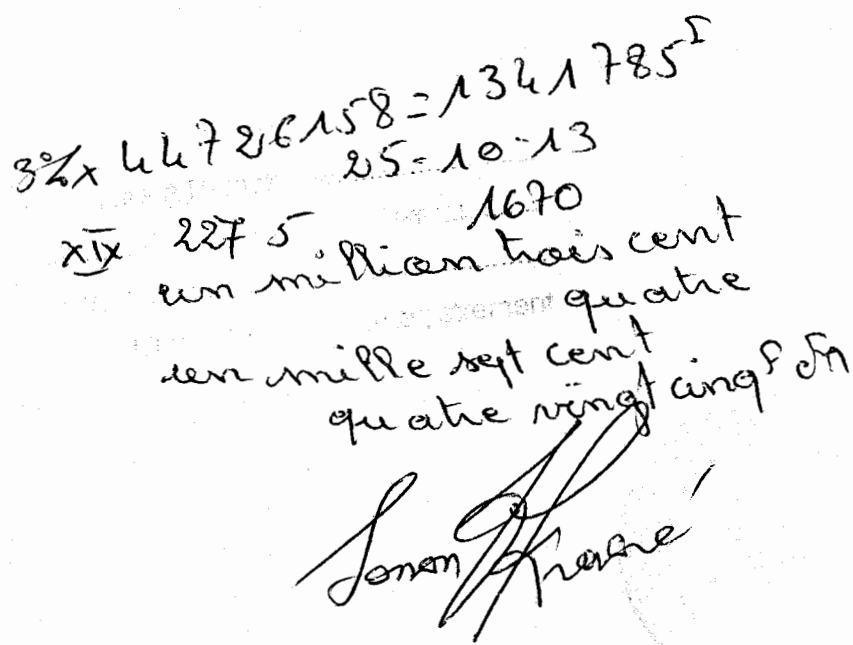 3% x 44726158 = 1341785 F
25-10-13
XIX 2275 1670
un million trois cent
quatre
un mille sept cent
quatre vingt cinq F